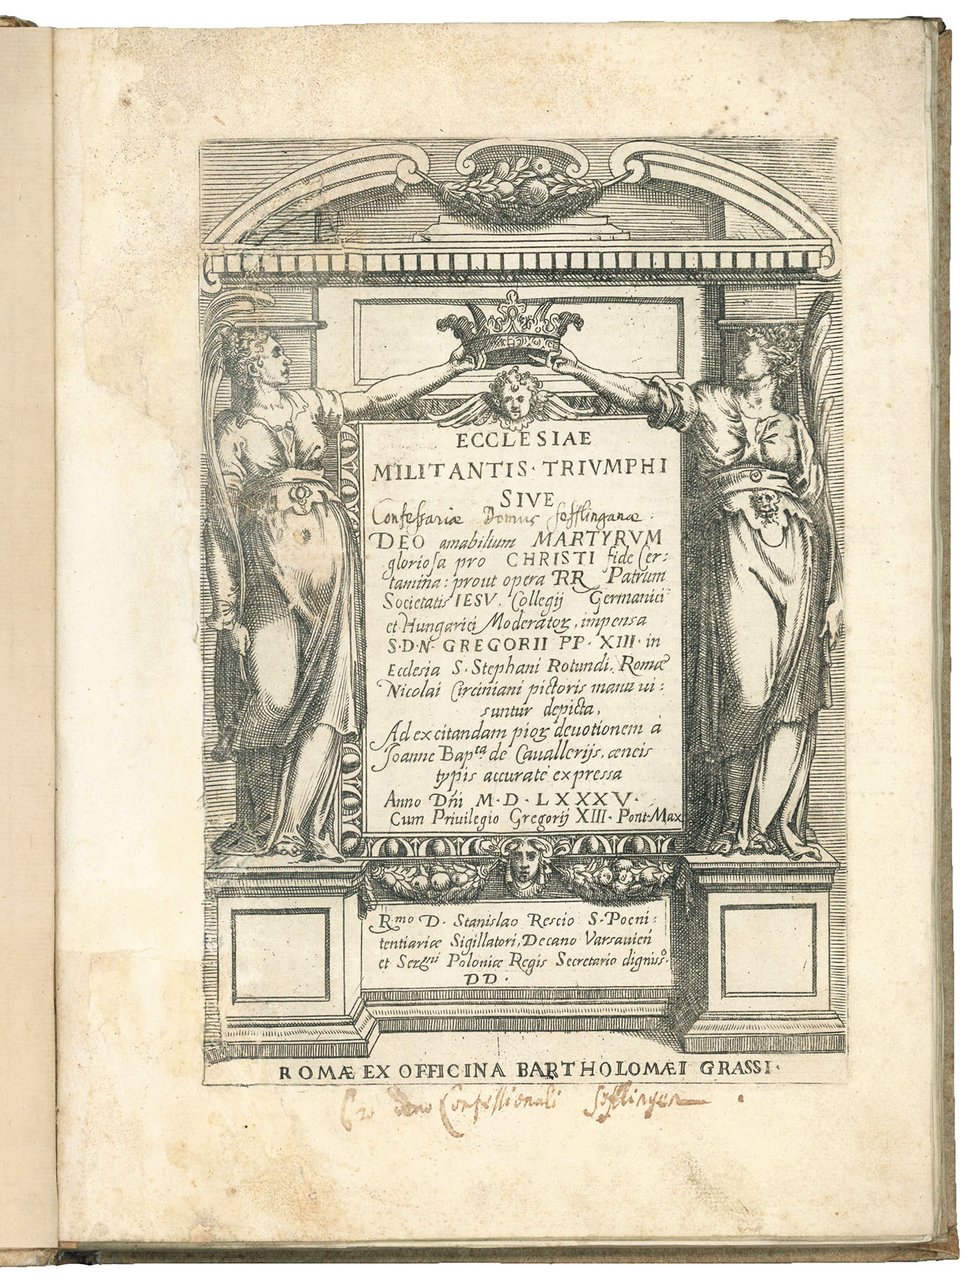 ECCLESIAE
MILITANTIS · TRIVMPHI
SIVE
Confessariæ Domus sefflinganæ.
DEO amabilium MARTYRVM
gloriosa pro CHRISTI fide Cer:
tamina: prout opera RR Patrum
Societatis IESV, Collegij Germanici
et Hungarici Moderator, impensa
S·D·N· GREGORII PP· XIII· in
Ecclesia S. Stephani Rotundi, Romæ
Nicolai Circiniani pictoris manu ui:
suntur depicta,
Ad excitandam pior deuotionem à
Joanne Bap.ta de Cauallerijs, æneis
typis accurate expressa
Anno Dñi M·D·LXXXV·
Cum Priuilegio Gregorij XIII· Pont·Max
R.mo D. Stanislao Rescio S·Poeni:
tentiariæ Sigillatori, Decano Varsauieñ
et Ser.mi Poloniæ Regis Secretario digniss.o
DD·
ROMÆ EX OFFICINA BARTHOLOMÆI GRASSI·
Confessionali